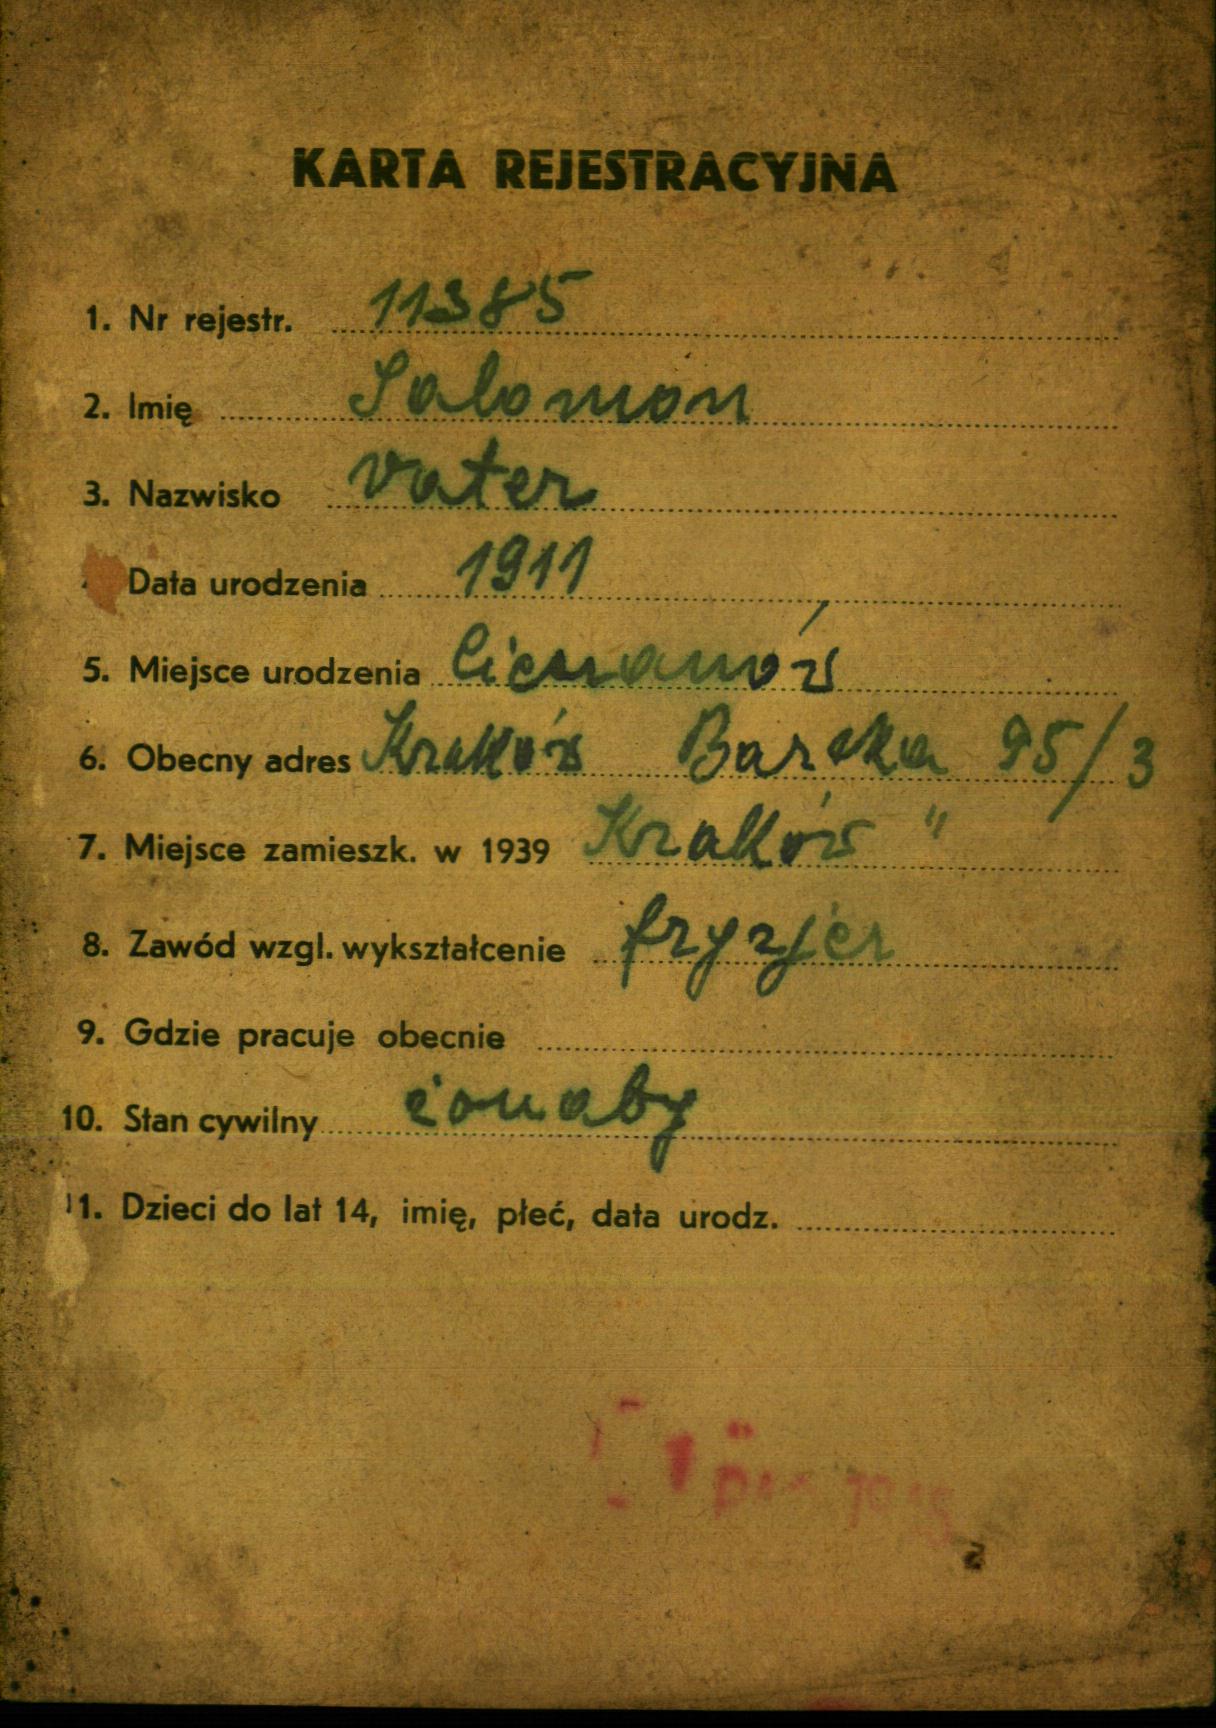 KARTA REJESTRACYJNA
1. Nr rejestr. 11385
2. Imię Salomon
3. Nazwisko Vater
Data urodzenia 1911
5. Miejsce urodzenia Cieszanów
6. Obecny adres Kraków Barska 95/3
7. Miejsce zamieszk. w 1939 Kraków "
8. Zawód wzgl. wykształcenie fryzjer
9. Gdzie pracuje obecnie
10. Stan cywilny żonaty
11. Dzieci do lat 14, imię, płeć, data urodz.